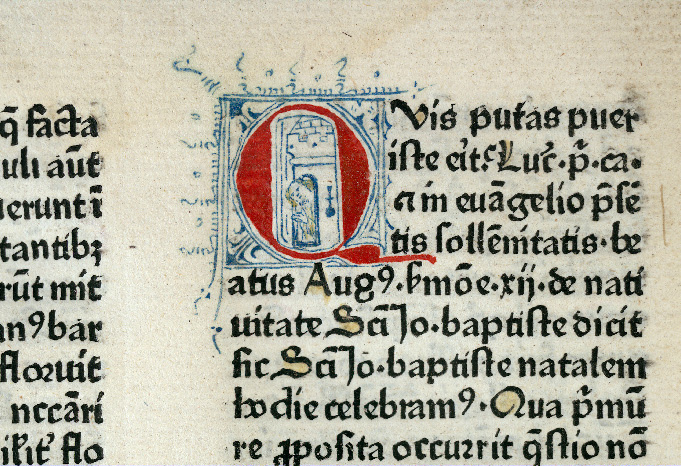 q̄ facta
uli aūt
uerunt ī
tantibꝫ
rūt mit
anꝰbar
floruit
nccāri
flo
Quis putas puer
iste erit. Luc̄. p̄.ca.
Et in euāgelio p̄sē
tis sollēnitatis. be
atus Augꝰ. ẜmōe.xij. de nati
uitate Scī Jo. baptiste dicit
sic Scī Jō. baptiste natalem
hodie celebramꝰ. Qua p̄mū
re ꝓposita occurrit q̄stio nō